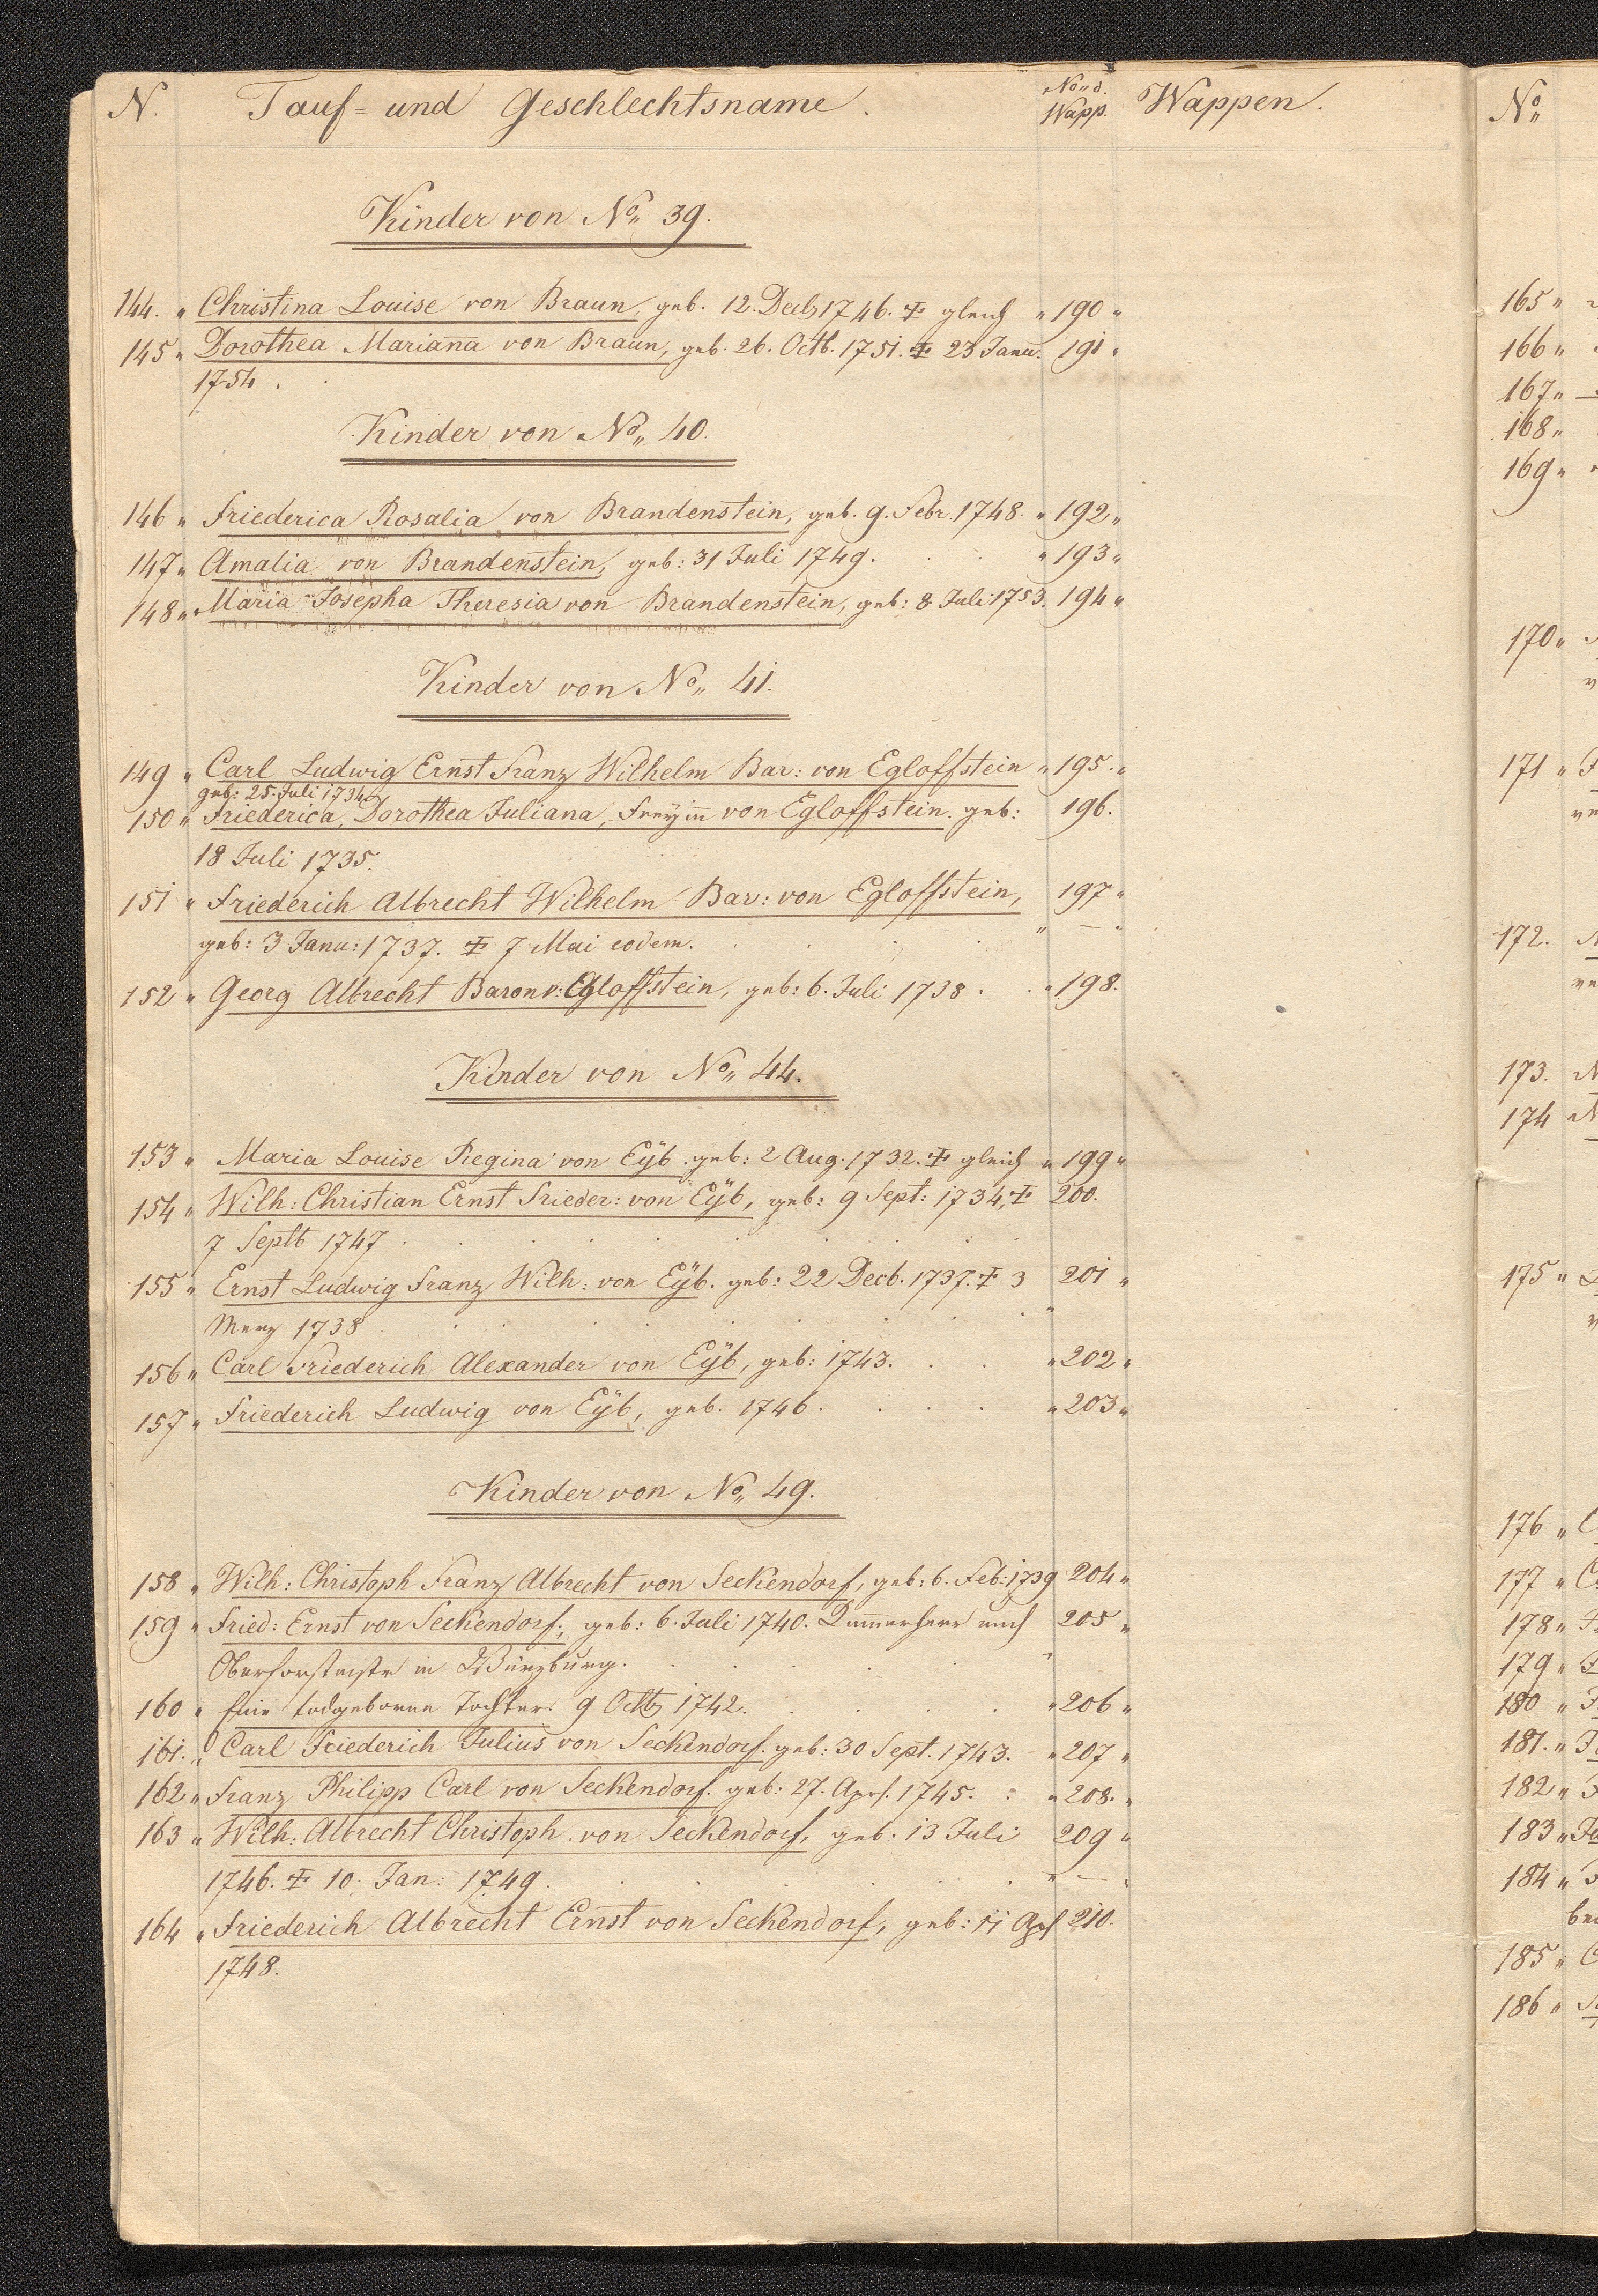 N. Tauf= und Geschlechtsname. No„ d. Wapp. Wappen.
Kinder von No„ 39.
144. „ Christina Louise von Braun, geb. 12. Decb 1746. ✝ gleich „ 190 „
145 „ Dorothea Mariana von Braun, geb. 26. Octb. 1751. ✝ 23 Janu. 191 „
1754.
Kinder von No„ 40.
146 „ Friederica Rosalia von Brandenstein, geb. 9. Febr. 1748. „ 192 „
147 „ Amalia von Brandenstein, geb: 31 Juli 1749. „ 193 „
148 „ Maria Josepha Theresia von Brandenstein, geb: 8 Juli 1753. 194 „
Kinder von No„ 41.
149 „ Carl Ludwig Ernst Franz Wilhelm Bar: von Egloffstein „ 195. „
geb: 25. Juli 1734
150 „ Friederica, Dorothea Juliana, Freyin von Egloffstein. geb: 196.
18 Juli 1735.
151 „ Friederich Albrecht Wilhelm Bar: von Egloffstein, 197 „
geb: 3 Janu: 1737. ✝ 7 Mai eodem. „ — „
152 „ Georg Albrecht Baron v: Egloffstein, geb: 6. Juli 1738. „ 198.
Kinder von No„ 44.
153 „ Maria Louise Regina von Eÿb. geb: 2 Aug. 1732. ✝ gleich „ 199 „
154 „ Wilh: Christian Ernst Frieder: von Eÿb, geb: 9 Sept: 1734, ✝ 200.
7 Septb 1747.
155 „ Ernst Ludwig Franz Wilh: von Eÿb. geb: 22 Decb. 1737. ✝ 3 201 „
Merz 1738 „
156 „ Carl Friederich Alexander von Eÿb, geb: 1743. „ 202 „
157 „ Friederich Ludwig von Eÿb, geb. 1746. „ 203 „
Kinder von No„ 49.
158 „ Wilh: Christoph Franz Albrecht von Seckendorf, geb: 6. Feb: 1739 204 „
159 „ Fried: Ernst von Seckendorf, geb: 6. Juli 1740. und 205 „
in Würzburg. „
160 „ Eine todgeborene Tochter. 9 Octb 1742. „ 206 „
161. „ Carl Friederich Julius von Seckendorf. geb: 30 Sept. 1743. „ 207 „
162 „ Franz Philipp Carl von Seckendorf. geb: 27. Aprl. 1745. „ 208. „
163 „ Wilh: Albrecht Christoph von Seckendorf, geb: 13 Juli 209 „
1746. ✝ 10. Jan: 1749. „ — „
164 „ Friederich Albrecht Ernst von Seckendorf, geb: 11 Aprl 210.
1748.
No„
165 „
166 „
167 „
168 „
169 „
170 „
171 „
172.
173.
174
175 „
176 „
177 „
178 „
179 „
180 „
181. „
182 „
183 „
184 „
185 „
186 „